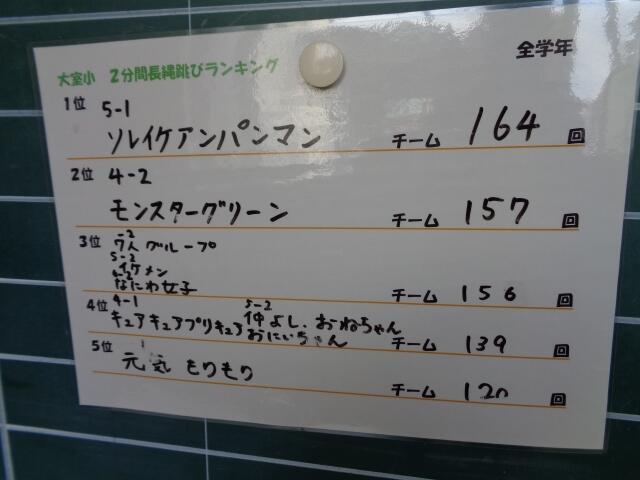 全学年
大室小 2分間長縄跳びランキング
1位 5-1
ソレイケアンパンマン チーム 164 回
2位 4-2
モンスターグリーン チーム 157 回
3位 -2
7人グループ
5-2
イケメン
なにわ女子 チーム 156 回
4位 4-1 5-2
キュアキュアプリキュア 仲よし.おねちゃん
おにいちゃん チーム 139 回
5位 元気もりもり チーム 120 回